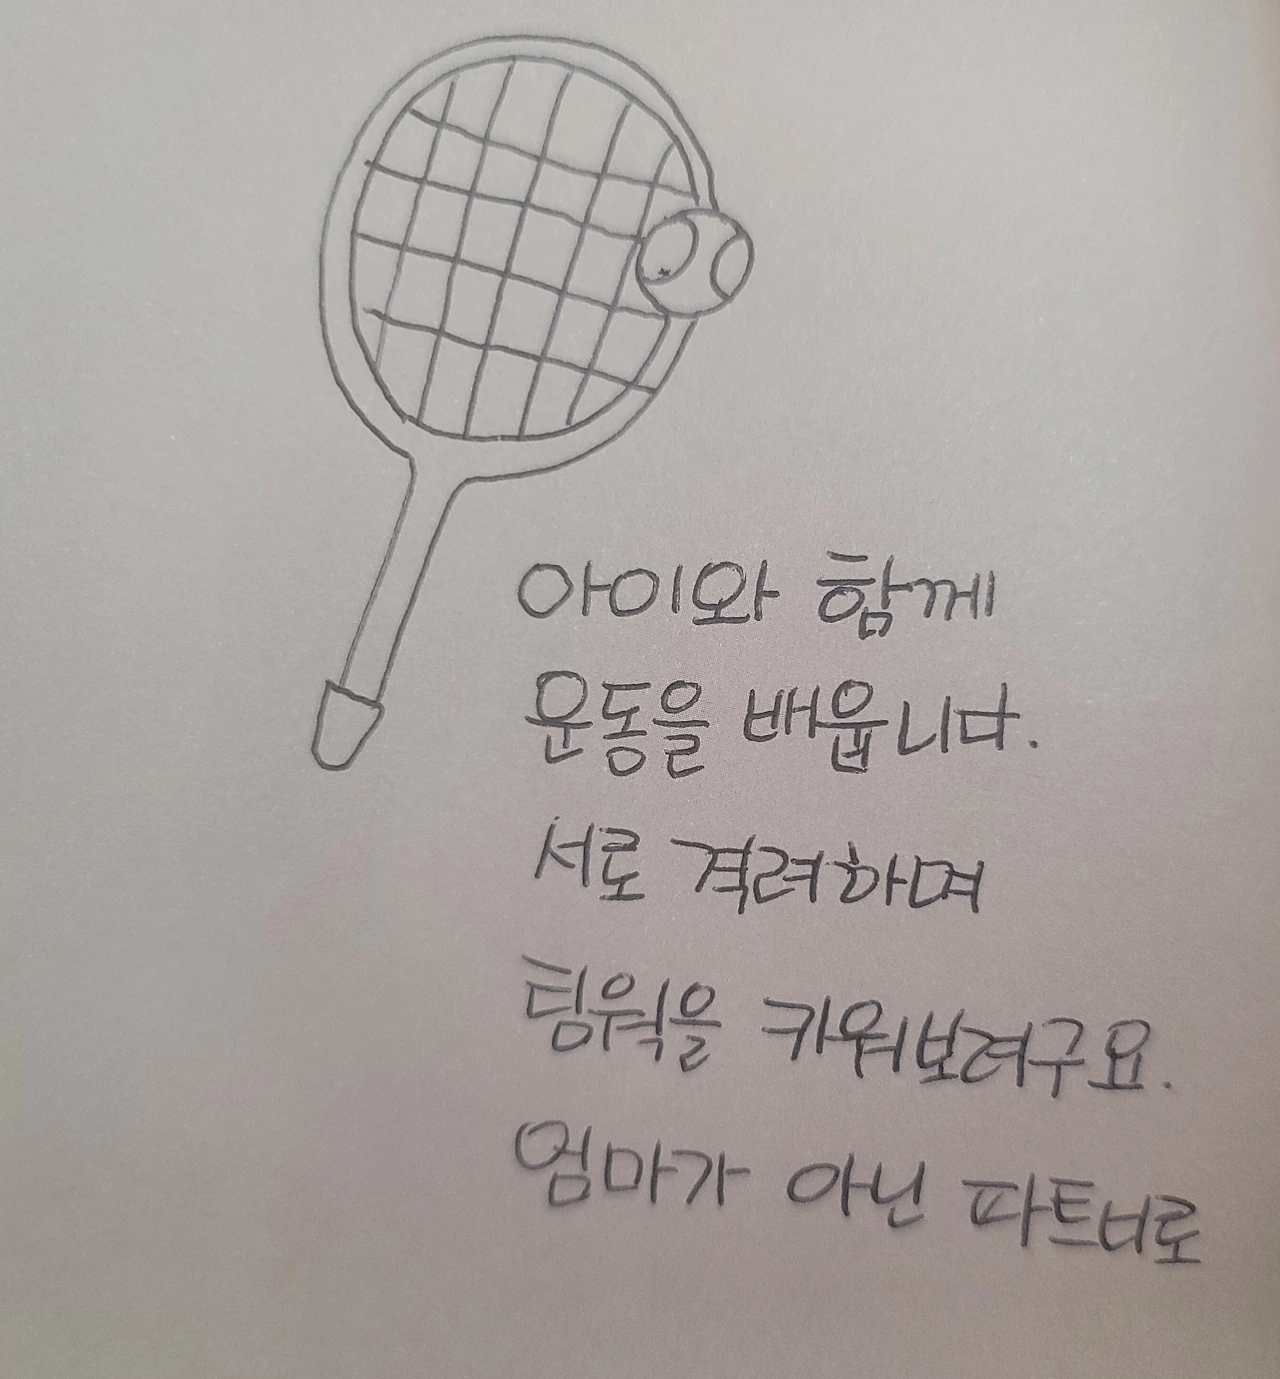 아이와 함께
운동을 배웁니다.
서로 격려하며
팀웍을 키워보려구요.
엄마가 아닌 파트너로